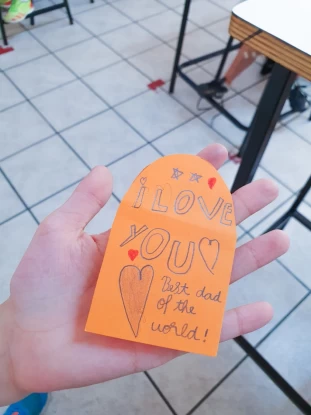 i LOVE
YOU
Best dad
of the
world!